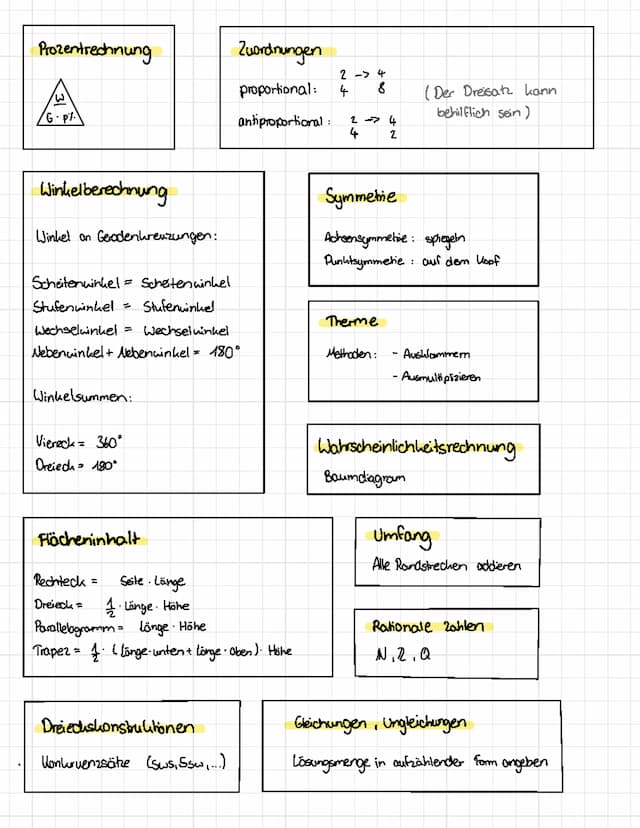 Prozentrechnung
W
G · p%
Zuordnungen
2 -> 4
proportional: 4 8
(Der Dreisatz kann
behilflich sein)
antiproportional: 2 -> 4
4 2
Winkelberechnung
Winkel an Geradenkreuzungen:
Scheitenwinkel = Scheitenwinkel
Stufenwinkel = Stufenwinkel
Wechselwinkel = Wechselwinkel
Nebenwinkel + Nebenwinkel = 180°
Winkelsummen:
Viereck = 360°
Dreieck = 180°
Symmetrie
Achsensymmetrie: spiegeln
Punktsymmetrie: auf dem Kopf
Therme
Methoden: - Ausklammern
- Ausmultiplizieren
Wahrscheinlichkeitsrechnung
Baumdiagram
Flächeninhalt
Rechteck = Seite · Länge
Dreieck = 1/2 · Länge · Höhe
Parallelogramm = Länge · Höhe
Trapez = 1/2 · (Länge·unten + Länge·oben) · Höhe
Umfang
Alle Randstrecken addieren
Rationale Zahlen
N, Z, Q
Dreieckskonstruktionen
Konkruenzsätze (sws, Ssw, ...)
Gleichungen, Ungleichungen
Lösungsmenge in aufzählender Form angeben